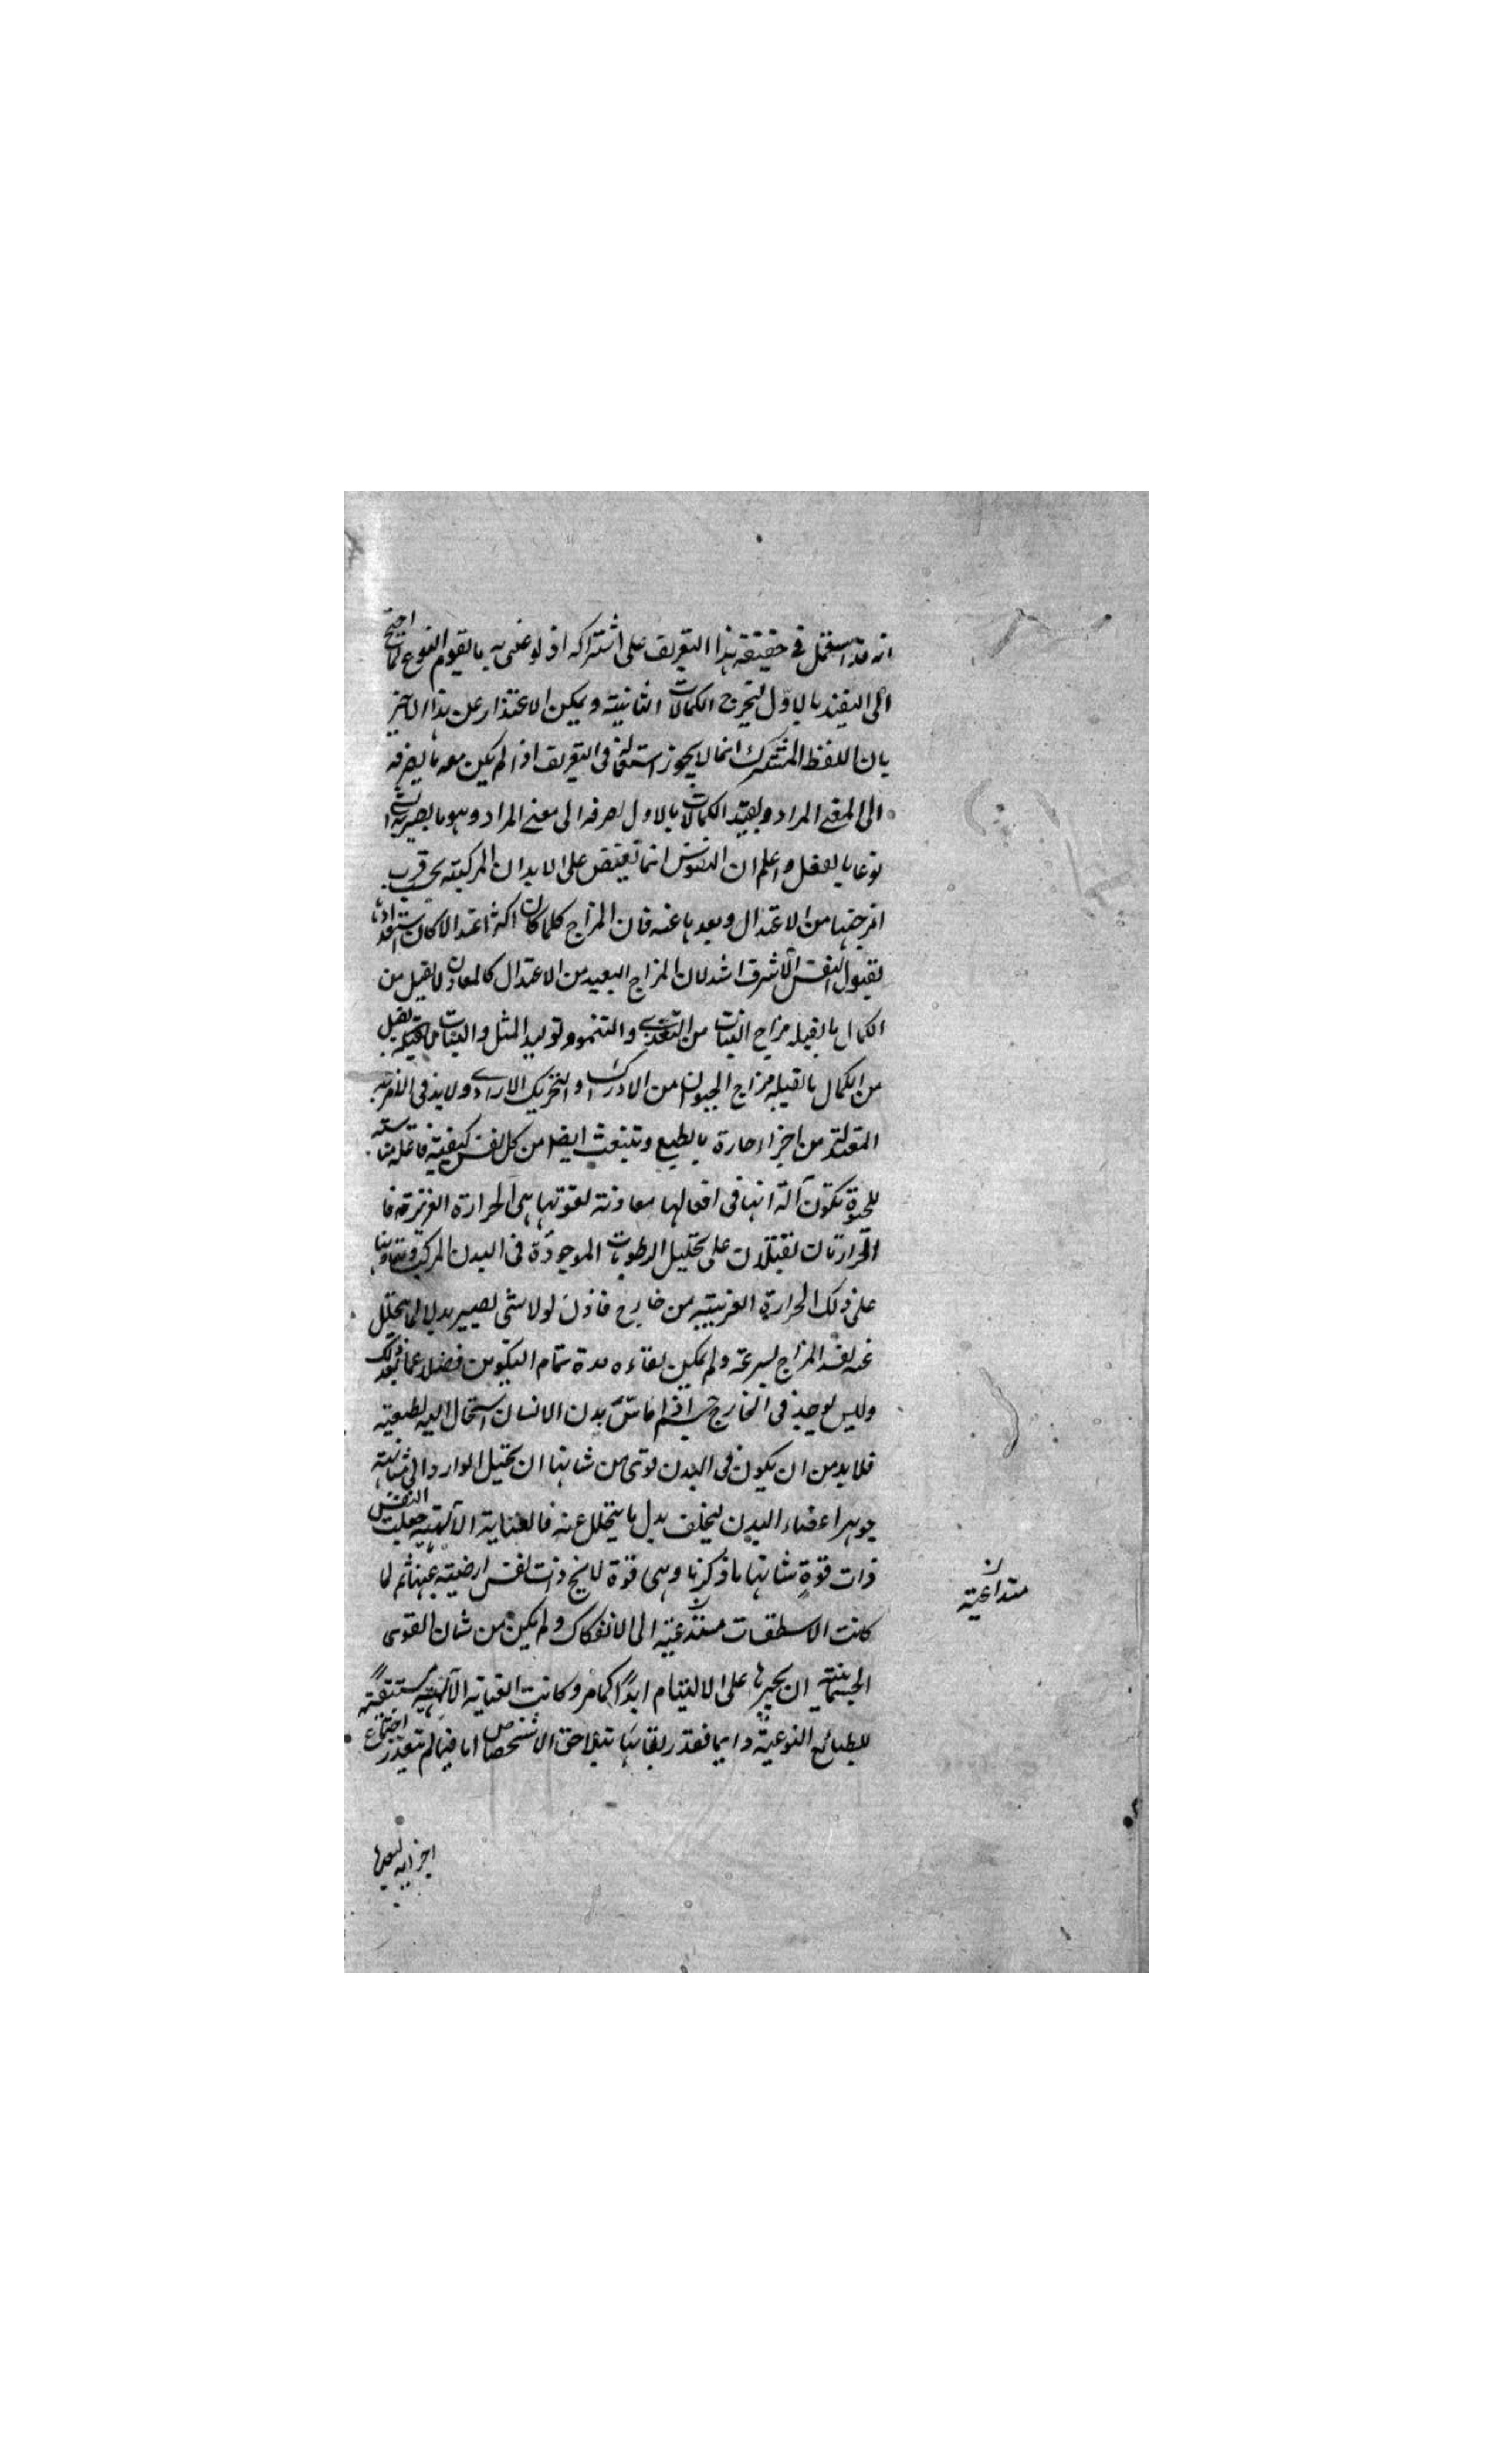 انه قد استعمل في حقيقة هذا التعريف على اشتراكه اذ لو عنى به ما يقوم النوع لما احتيج
الى التقييد بالاول ليخرج الكمالات الثانية ويمكن الاعتذار عن هذا الاخير
بان اللفظ المشترك انما لا يجوز استعماله في التعريف اذا لم يكن معه ما يصرفه
الى المعنى المراد وبقيد الكمالات بالاول صرفه الى معنى المراد وهو ما يصير به
نوعا بالفعل واعلم ان النفوس انما تفيض على الابدان المركبة بحسب قرب
امزجتها من الاعتدال وبعدها عنه فان المزاج كلما كان اكثر اعتدالا كان استعداده
لقبول النفس الاشرف اشد لان المزاج البعيد من الاعتدال كالمعادن لا يقبل من
الكمال ما يقبله مزاج النبات من التغذي والتنمو وتوليد المثل والنبات لا يقبل
من الكمال ما يقبله مزاج الحيوان من الادراك والتحريك الارادي ولا بد في الامزجة
المعتدلة من اجزاء حارة بالطبع وتنبعث ايضا من كل نفس كيفية فاعلة مناسبة
للحيوة تكون آلة لها في افعالها معاونة لقوتها هي الحرارة الغريزية فا
لحرارتان تقبلان على تحليل الرطوبات الموجودة في البدن المركب وتعاونهما
على ذلك الحرارة الغريبة من خارج فاذن لولا شي يصير بدلا لما يتحلل
عنه لفسد المزاج بسرعة ولم يمكن بقاءه مدة تمام التكوين فضلا عما بعد ذلك
وليس يوجد في الخارج جسم اذا ماس بدن الانسان استحال اليه بطبيعته
فلا بد من ان يكون في البدن قوى من شانها ان تحيل الوارد الى مشابهة
جوهر اعضاء البدن ليخلف بدل ما يتحلل عنه فالعناية الآلهية جعلت النفس
ذات قوة شانها ما ذكرنا وهى قوة لا يخ ذات نفس ارضية عنها ثم لما
كانت الاسطقسات متداعية الى الانفكاك ولم يكن من شان القوى
الجسمانية ان يجبرها على الالتيام ابدا كما مر وكانت العناية الآلهية مستبقية
للطبائع النوعية دايما فقدر بقائها بتلاحق الاشخاص اما فيما لم يتعذر اجتماع
متداعية
اجزايه لبعدها